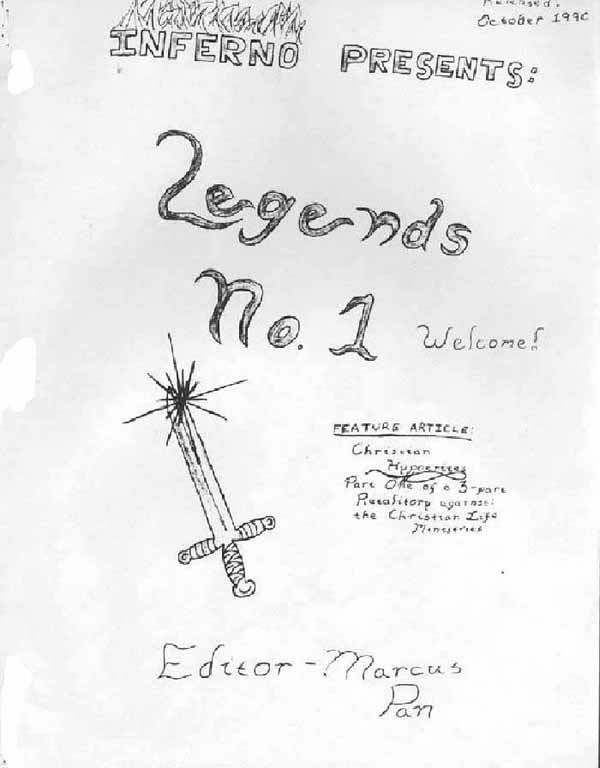 Released:
October 1990
INFERNO PRESENTS:
Legends
No. 1
Welcome!
FEATURE ARTICLE:
Christian
Hypocrites
Part One of a 3-part
Retalitory against
the Christian Life
Ministries
Editor - Marcus
Pan